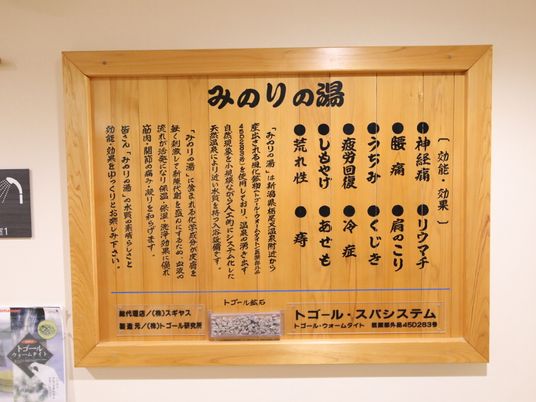 みのりの湯
〔効能・効果〕
●神経痛 ●リウマチ
●腰痛 ●肩のこり
●うちみ ●くじき
●疲労回復 ●冷症
●しもやけ ●あせも
●荒れ性 ●痔
「みのりの湯」は新潟県栃尾又温泉附近から
産出される風化鉱物(トゴール・ウォームタイト医薬部外品
45D283号)を使用しており、温泉の湧き出す
自然現象を小規模ながら人工的にシステム化した
天然温泉により近い水質を持つ入浴設備です。
「みのりの湯」に含まれる化学成分が皮膚を
軽く刺激して新陳代謝を盛んにするため、血液の
流れが活発になり保温・保湿・洗浄効果に優れ
筋肉・関節の痛み・凝りを和らげます。
皆さん「みのりの湯」の水質の素晴らしさと
効能・効果をゆっくりとお楽しみ下さい。
トゴール鉱石
総代理店／(株)スギヤス
製造元／(株)トゴール研究所
トゴール・スパシステム
トゴール・ウォームタイト 医薬部外品45D283号
トゴール
ウォームタイト